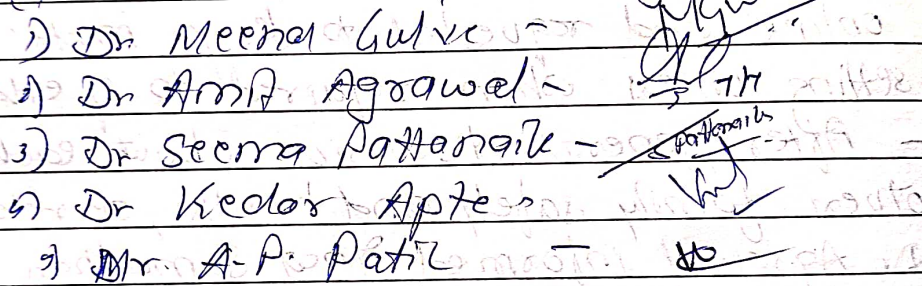 1) Dr Meenal Gulve -
2) Dr Amit Agrawal -
3) Dr Seema Pattanaik - SPattanaik
4) Dr Kedar Apte -
5) Mr. A.P. Patil -